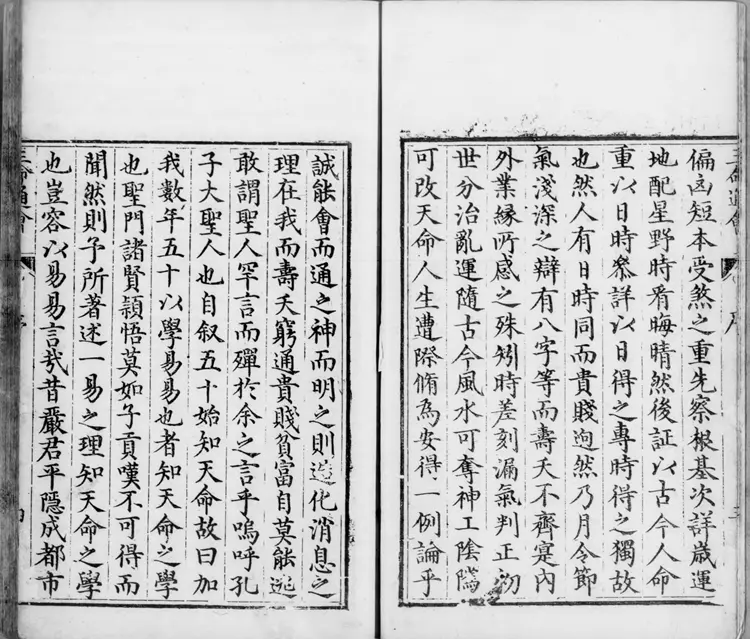 三命通會 序 三
偏凶短本受煞之重先察根基次詳歲運
地配星野時看晦晴然後証以古今人命
重以日時叅詳以日得之專時得之獨故
也然人有日時同而貴賤逈然乃月令節
氣淺深之辯有八字等而壽夭不齊寔內
外業緣所感之殊矧時差刻漏氣判正初
世分治亂運隨古今風水可奪神工陰隲
可改天命人生遭際脩為安得一例論乎
誠能會而通之神而明之則造化消息之
理在我而壽夭窮通貴賤貧富自莫能逃
敢謂聖人罕言而殫於余之言乎嗚呼孔
子大聖人也自叙五十始知天命故曰加
我數年五十以學易易也者知天命之學
也聖門諸賢頴悟莫如子貢嘆不可得而
聞然則予所著述一易之理知天命之學
也豈容以易易言哉昔嚴君平隱成都市
三命通會 序 四